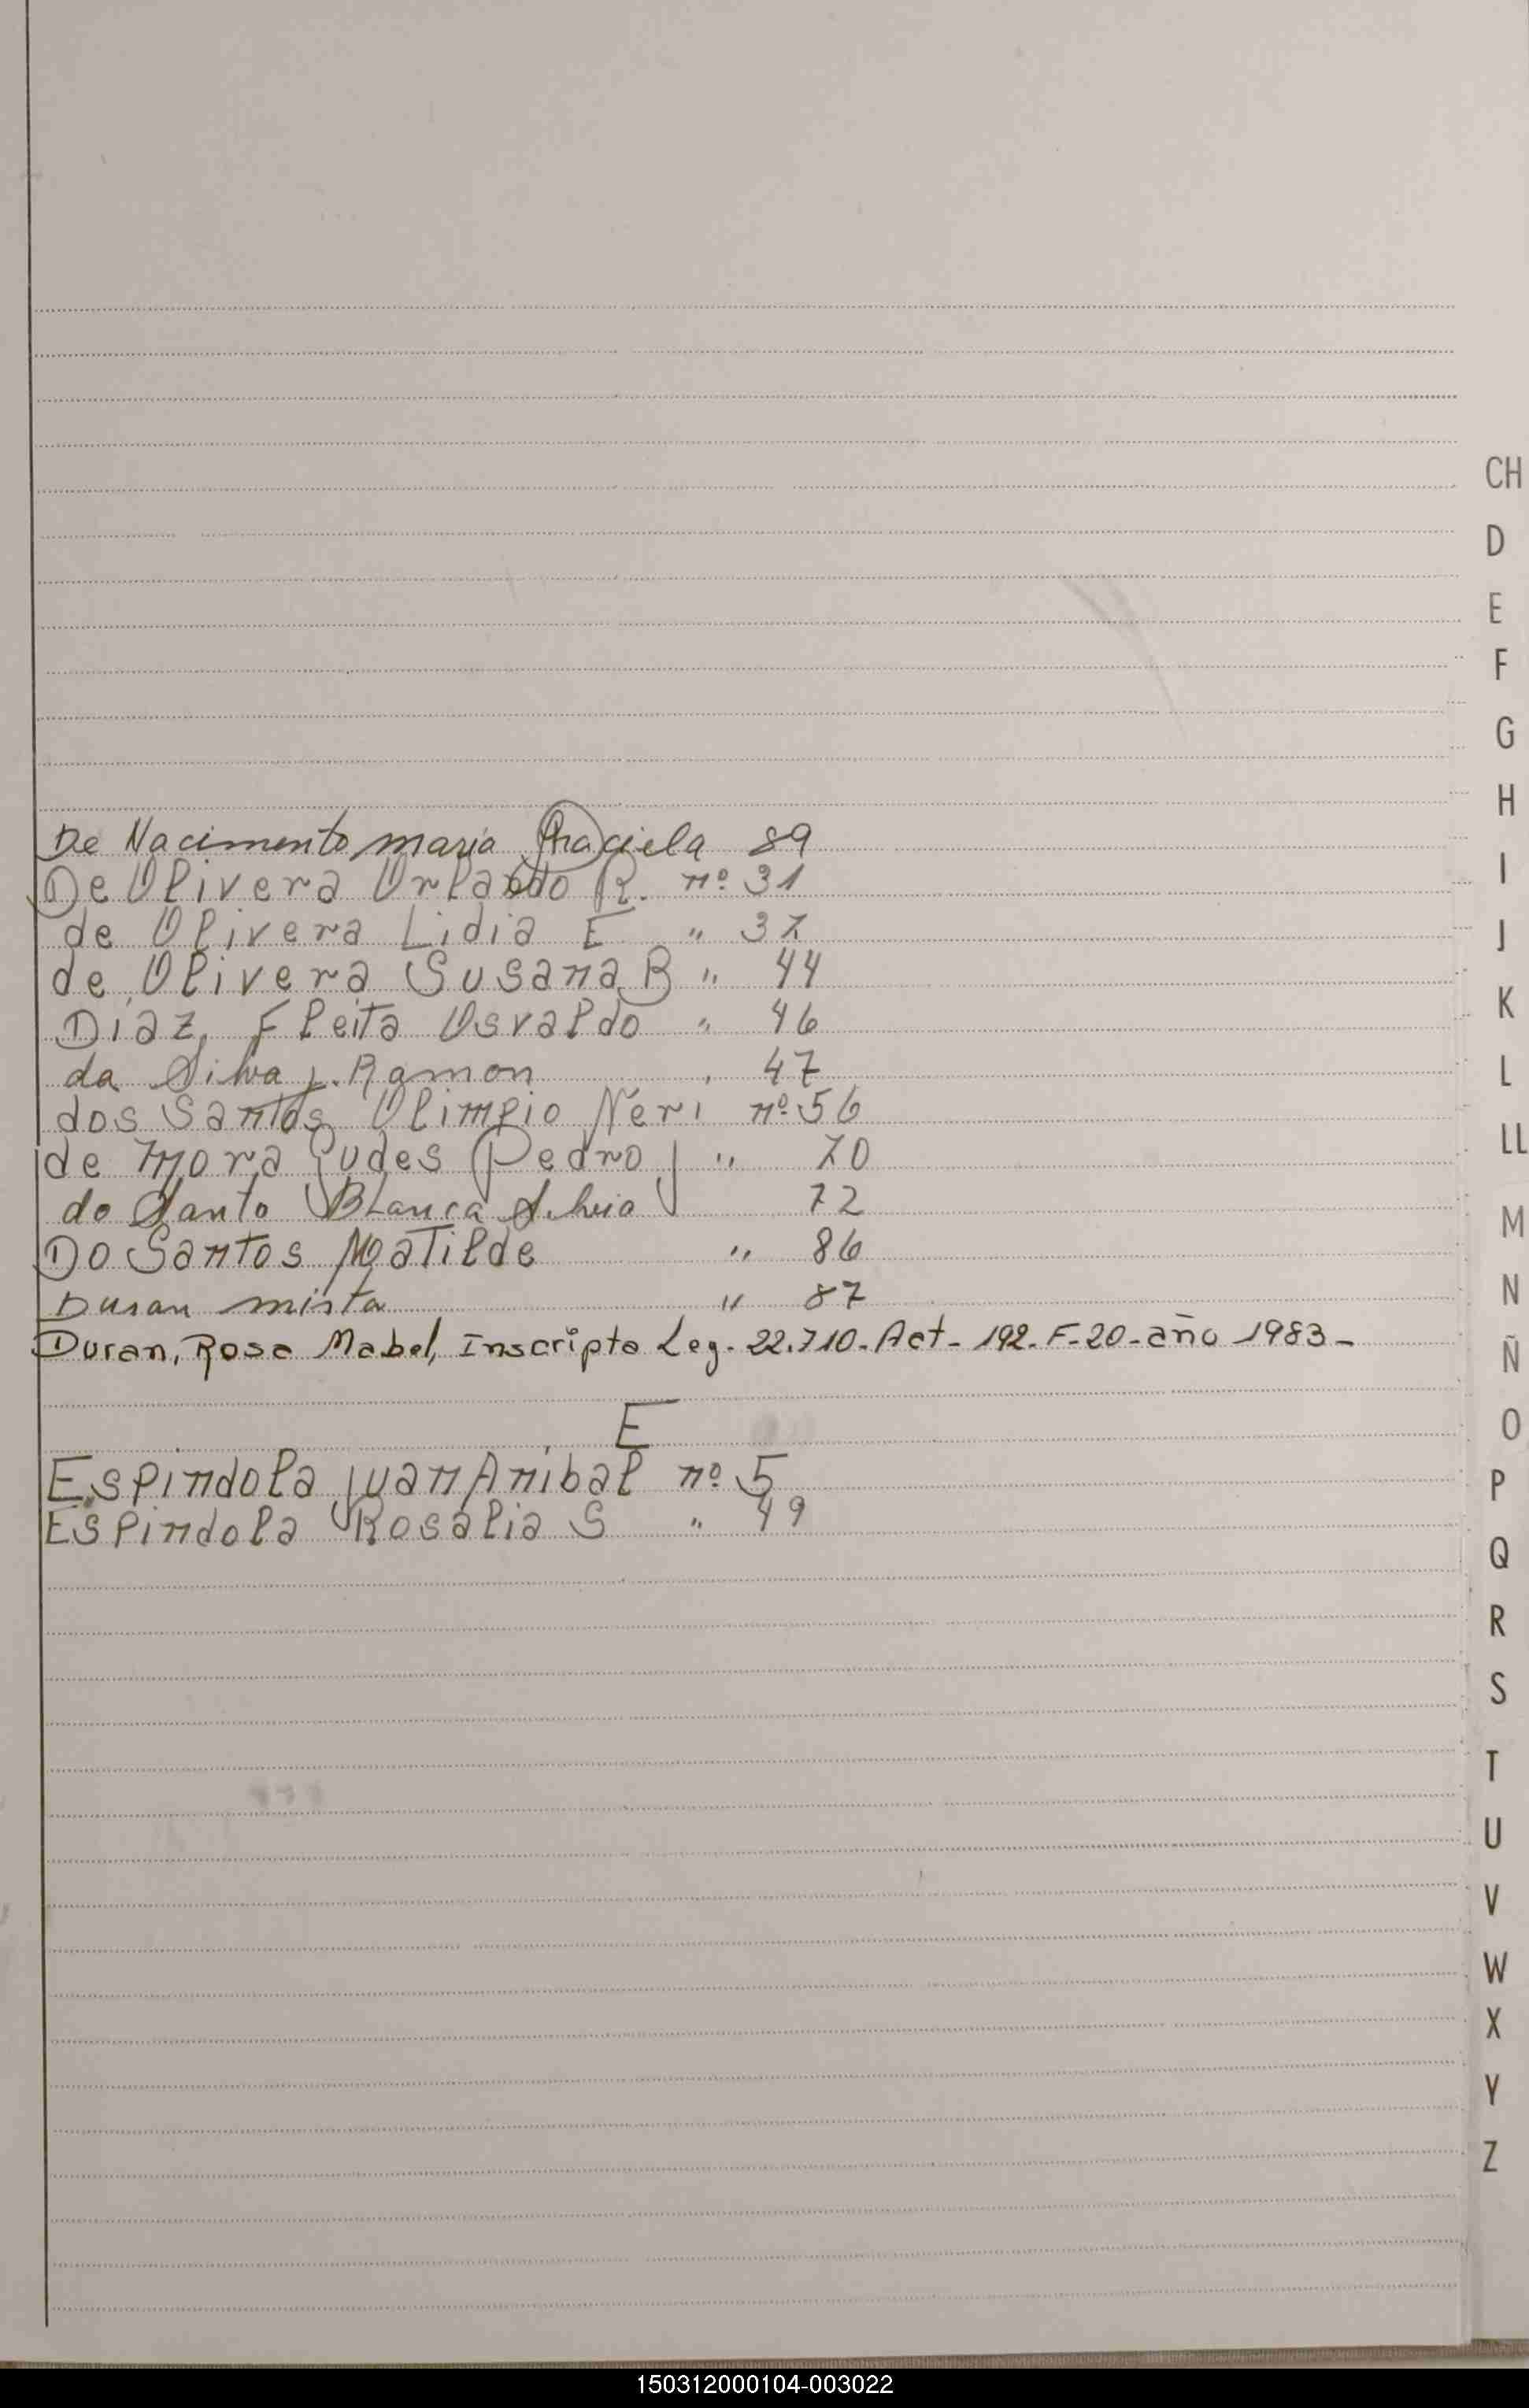 De Nacimento maria Graciela 89
De Olivera Orlando R. nº 31
de Olivera Lidia E " 37
de Olivera Susana B " 44
Diaz, Fleita Osvaldo " 46
da Silva, L. Ramon " 47
dos Santos Olimpio Neri nº 56
de Mora Gudes Pedro J " 70
do Santo Blanca Silvia 72
Do Santos Matilde " 86
Duran mirta " 87
Duran, Rosa Mabel, Inscripta Leg. 22.710. Act- 192. F-20- año 1983-
E
Espindola Juan Anibal nº 5
Espindola Rosalia S " 49
CH
D
E
F
G
H
I
J
K
L
LL
M
N
Ñ
O
P
Q
R
S
T
U
V
W
X
Y
Z
150312000104-003022